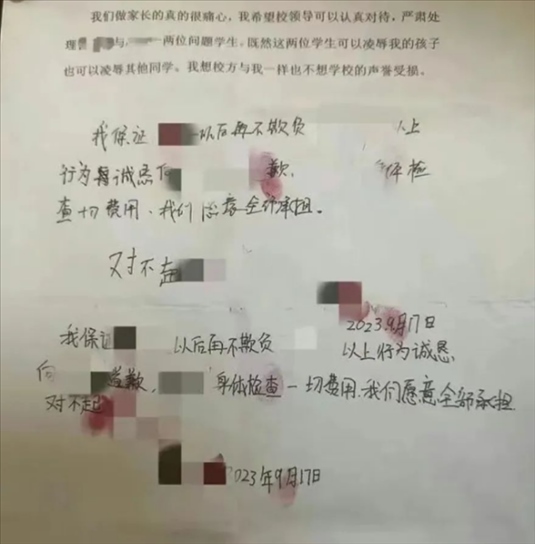 我们做家长的真的很痛心，我希望校领导可以认真对待，严肃处
理 与 两位问题学生。既然这两位学生可以凌辱我的孩子
也可以凌辱其他同学。我想校方与我一样也不想学校的声誉受损。
我保证 以后再不欺负 以上
行为 诚恳向 歉， 体检
查 切费用、我们愿意全部承担。
对不
2023.9月17日
我保证 以后再不欺负 以上行为诚恳
向 道歉， 身体检查一切费用.我们愿意全部承担
对不起
2023年9月17日